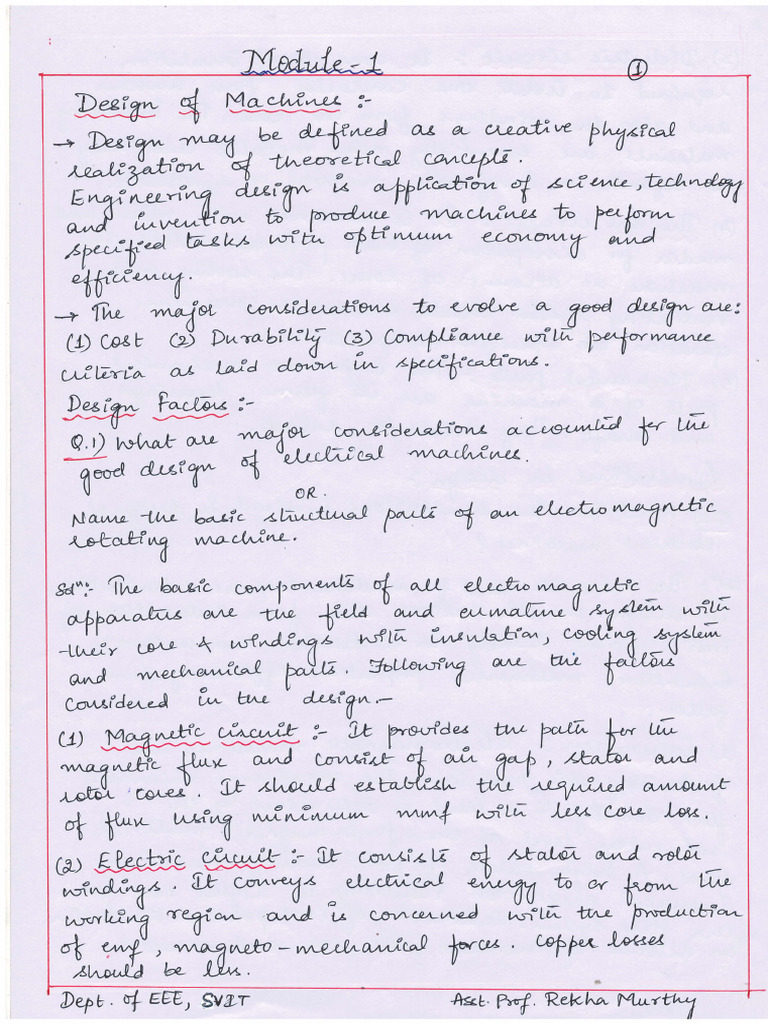 Module-1
1
Design of Machines :-
→ Design may be defined as a creative physical
realization of theoretical concepts.
Engineering design is application of science, technology
and invention to produce machines to perform
specified tasks with optimum economy and
efficiency.
→ The major considerations to evolve a good design are:
(1) Cost (2) Durability (3) Compliance with performance
criteria as laid down in specifications.
Design Factors :-
Q.1) What are major considerations accounted for the
good design of electrical machines.
OR.
Name the basic structural parts of an electromagnetic
rotating machine.
Soln:- The basic components of all electromagnetic
apparatus are the field and armature system with
their core & windings with insulation, cooling system
and mechanical parts. Following are the factors
considered in the design.-
(1) Magnetic circuit :- It provides the path for the
magnetic flux and consist of air gap, stator and
rotor cores. It should establish the required amount
of flux using minimum mmf with less core loss.
(2) Electric circuit :- It consists of stator and rotor
windings. It conveys electrical energy to or from the
working region and is concerned with the production
of emf, magneto-mechanical forces. Copper losses
should be less.
Dept. of EEE, SVIT Asst. Prof. Rekha Murthy